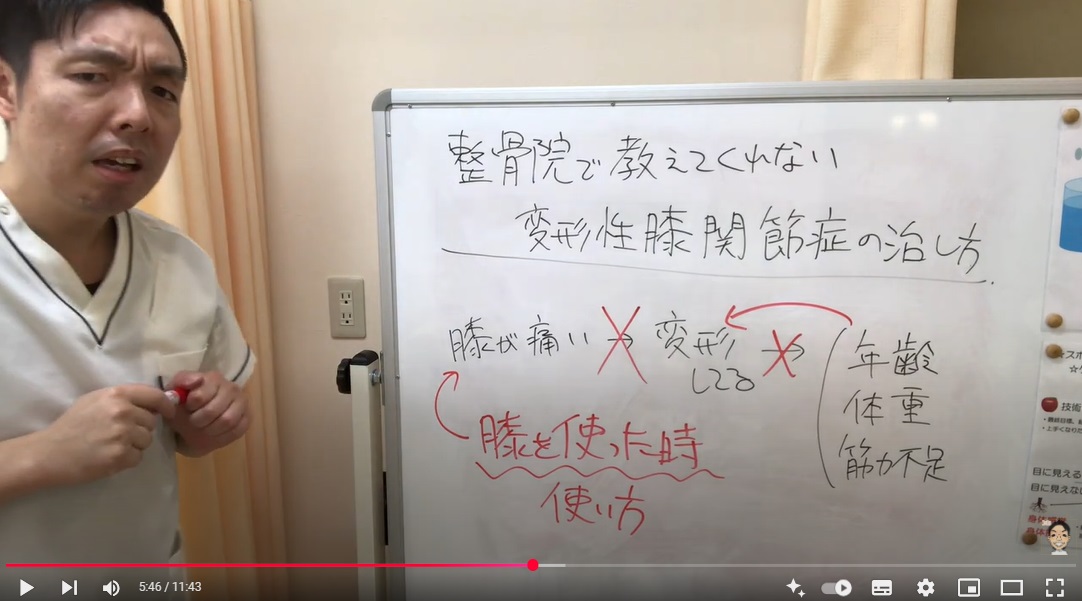 整骨院で教えてくれない
変形性膝関節症の治し方
膝が痛い → 変形してる → 年齢 体重 筋力不足
膝を使った時
使い方
技術
目に見える
目に見えな
5:46 / 11:43